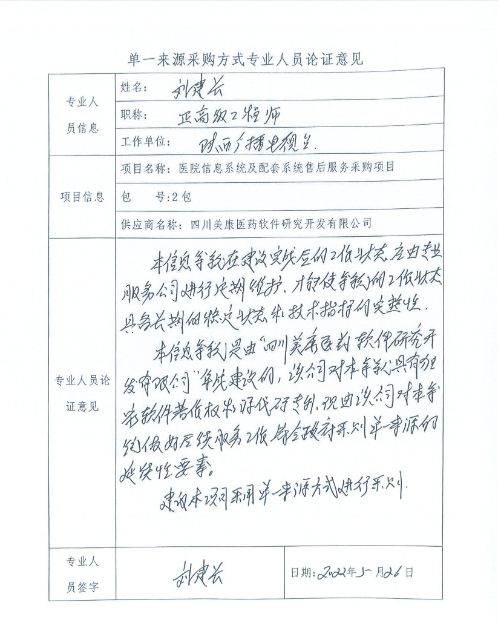 单一来源采购方式专业人员论证意见
专业人员信息
姓名：刘建长
职称：正高级工程师
工作单位：陕西广播电视台
项目信息
项目名称：医院信息系统及配套系统售后服务采购项目
包　号：2包
供应商名称：四川美康医药软件研究开发有限公司
专业人员论证意见
本信息系统在建设完成后的工作状态，应由专业
服务公司进行定期维护，才能使系统的工作状态
具备长期的稳定状态和技术指标的完整性。
本信息系统是由“四川美康医药软件研究开
发有限公司”承建设的，该公司对本系统具有独
家软件著作权和源代码专利，现由该公司对本系
统做好后续服务工作，符合政府采购单一来源的
延续性要事。
建议本项目采用单一来源方式进行采购.
专业人员签字
刘建长
日期：2022年5月26日